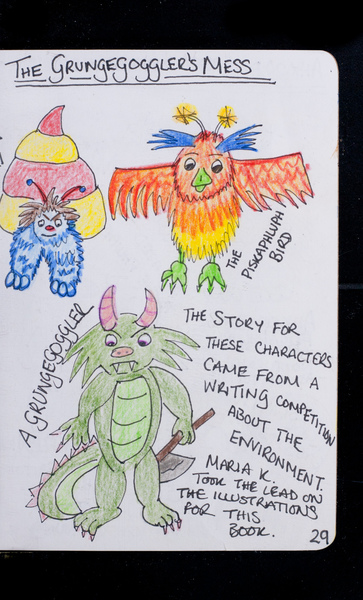 THE GRUNGEGOGGLER'S MESS
THE
PISKAPHLUPH
BIRD
A GRUNGEGOGGLER
THE STORY FOR
THESE CHARACTERS
CAME FROM A
WRITING COMPETITION
ABOUT THE
ENVIRONMENT.
MARIA K.
TOOK THE LEAD ON
THE ILLUSTRATIONS
FOR THIS
BOOK.
29